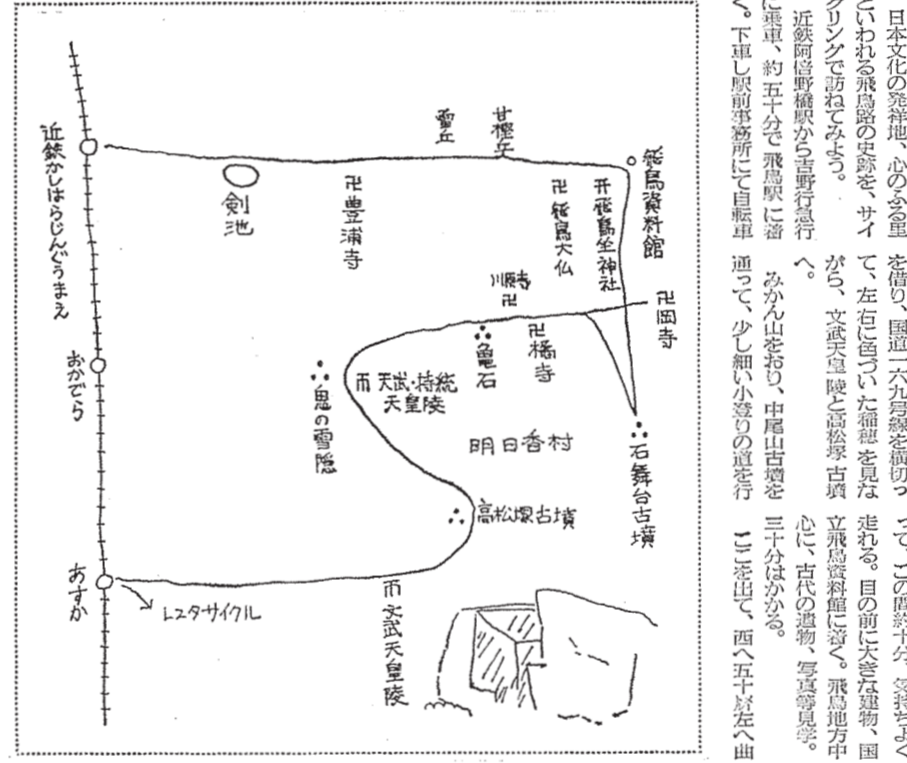 日本文化の発祥地、心のふる里
といわれる飛鳥路の史跡を、サイ
クリングで訪ねてみよう。
近鉄阿倍野橋駅から吉野行急行
に乗車、約五十分で飛鳥駅に着
く。下車し駅前事務所にて自転車
を借り、国道一六九号線を横切っ
て、左右に色づいた稲穂を見な
がら、文武天皇陵と高松塚古墳
へ。
みかん山をおり、中尾山古墳を
通って、少し細い小登りの道を行
って、この間約十分、気持ちよく
走れる。目の前に大きな建物、国
立飛鳥資料館に着く。飛鳥地方中
心に、古代の遺物、写真等見学。
三十分はかかる。
ここを出て、西へ五十㍍左へ曲
近鉄かしはらじんぐうまえ
剣池
卍豊浦寺
雷丘
甘樫丘
卍飛鳥大仏
开飛鳥坐神社
飛鳥資料館
川原寺
卍
卍岡寺
おかでら
鬼の雪隠
天武・持統
天皇陵
亀石
卍橘寺
明日香村
石舞台古墳
高松塚古墳
あすか
レンタサイクル
文武天皇陵